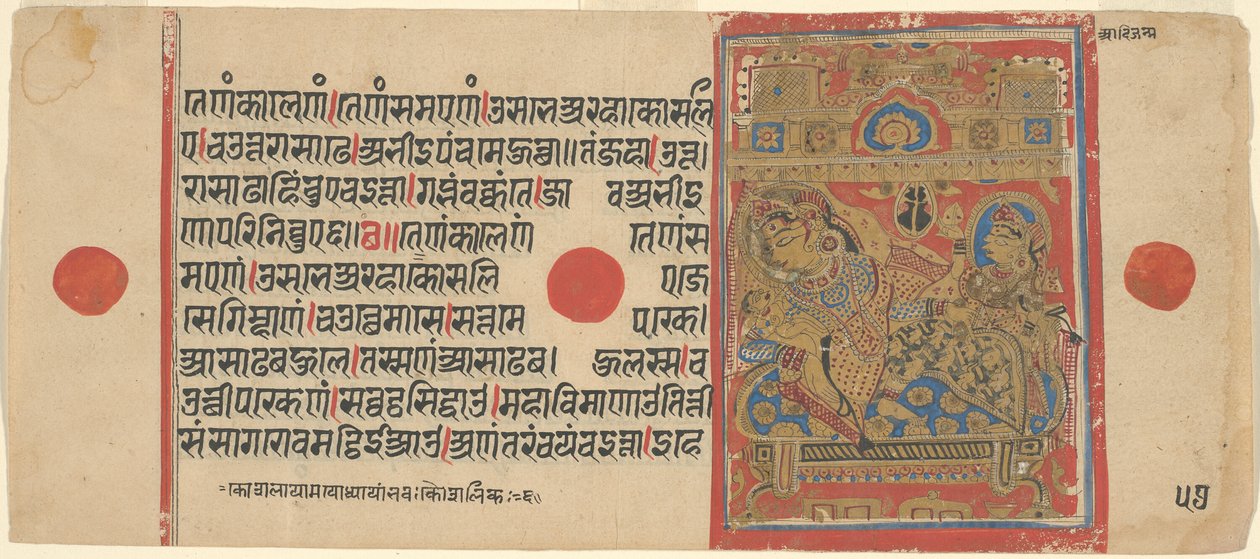 आदिजन्म
तेणं कालेणं। तेणं समएणं। उसभे अरहा कोसलि
ए। चउउत्तरासाढे। अभीइपंचमे हुत्था॥ तं जहा। उत्त।
रासाढाहिं चुए चइत्ता। गब्भं वक्कंते। जाव अभीइ
णा परिनिव्वुए॥ छ॥ तेणं कालेणं तेणं स
मएणं। उसभे अरहा कोसलिए जे
से गिम्हाणं। चउत्थे मासे। सत्तमे पक्खे।
आसाढबहुले। तस्स णं आसाढब। हुलस्स। च
उत्थीपक्खेणं। सव्वट्ठसिद्धाउ। महाविमाणाउ तित्ती
सं सागरोवमट्ठिईआउ। अणंतरं चयं चइत्ता। इहे
=कोशलायामयोध्यायां भवः कौशलिकः=६॥
५७